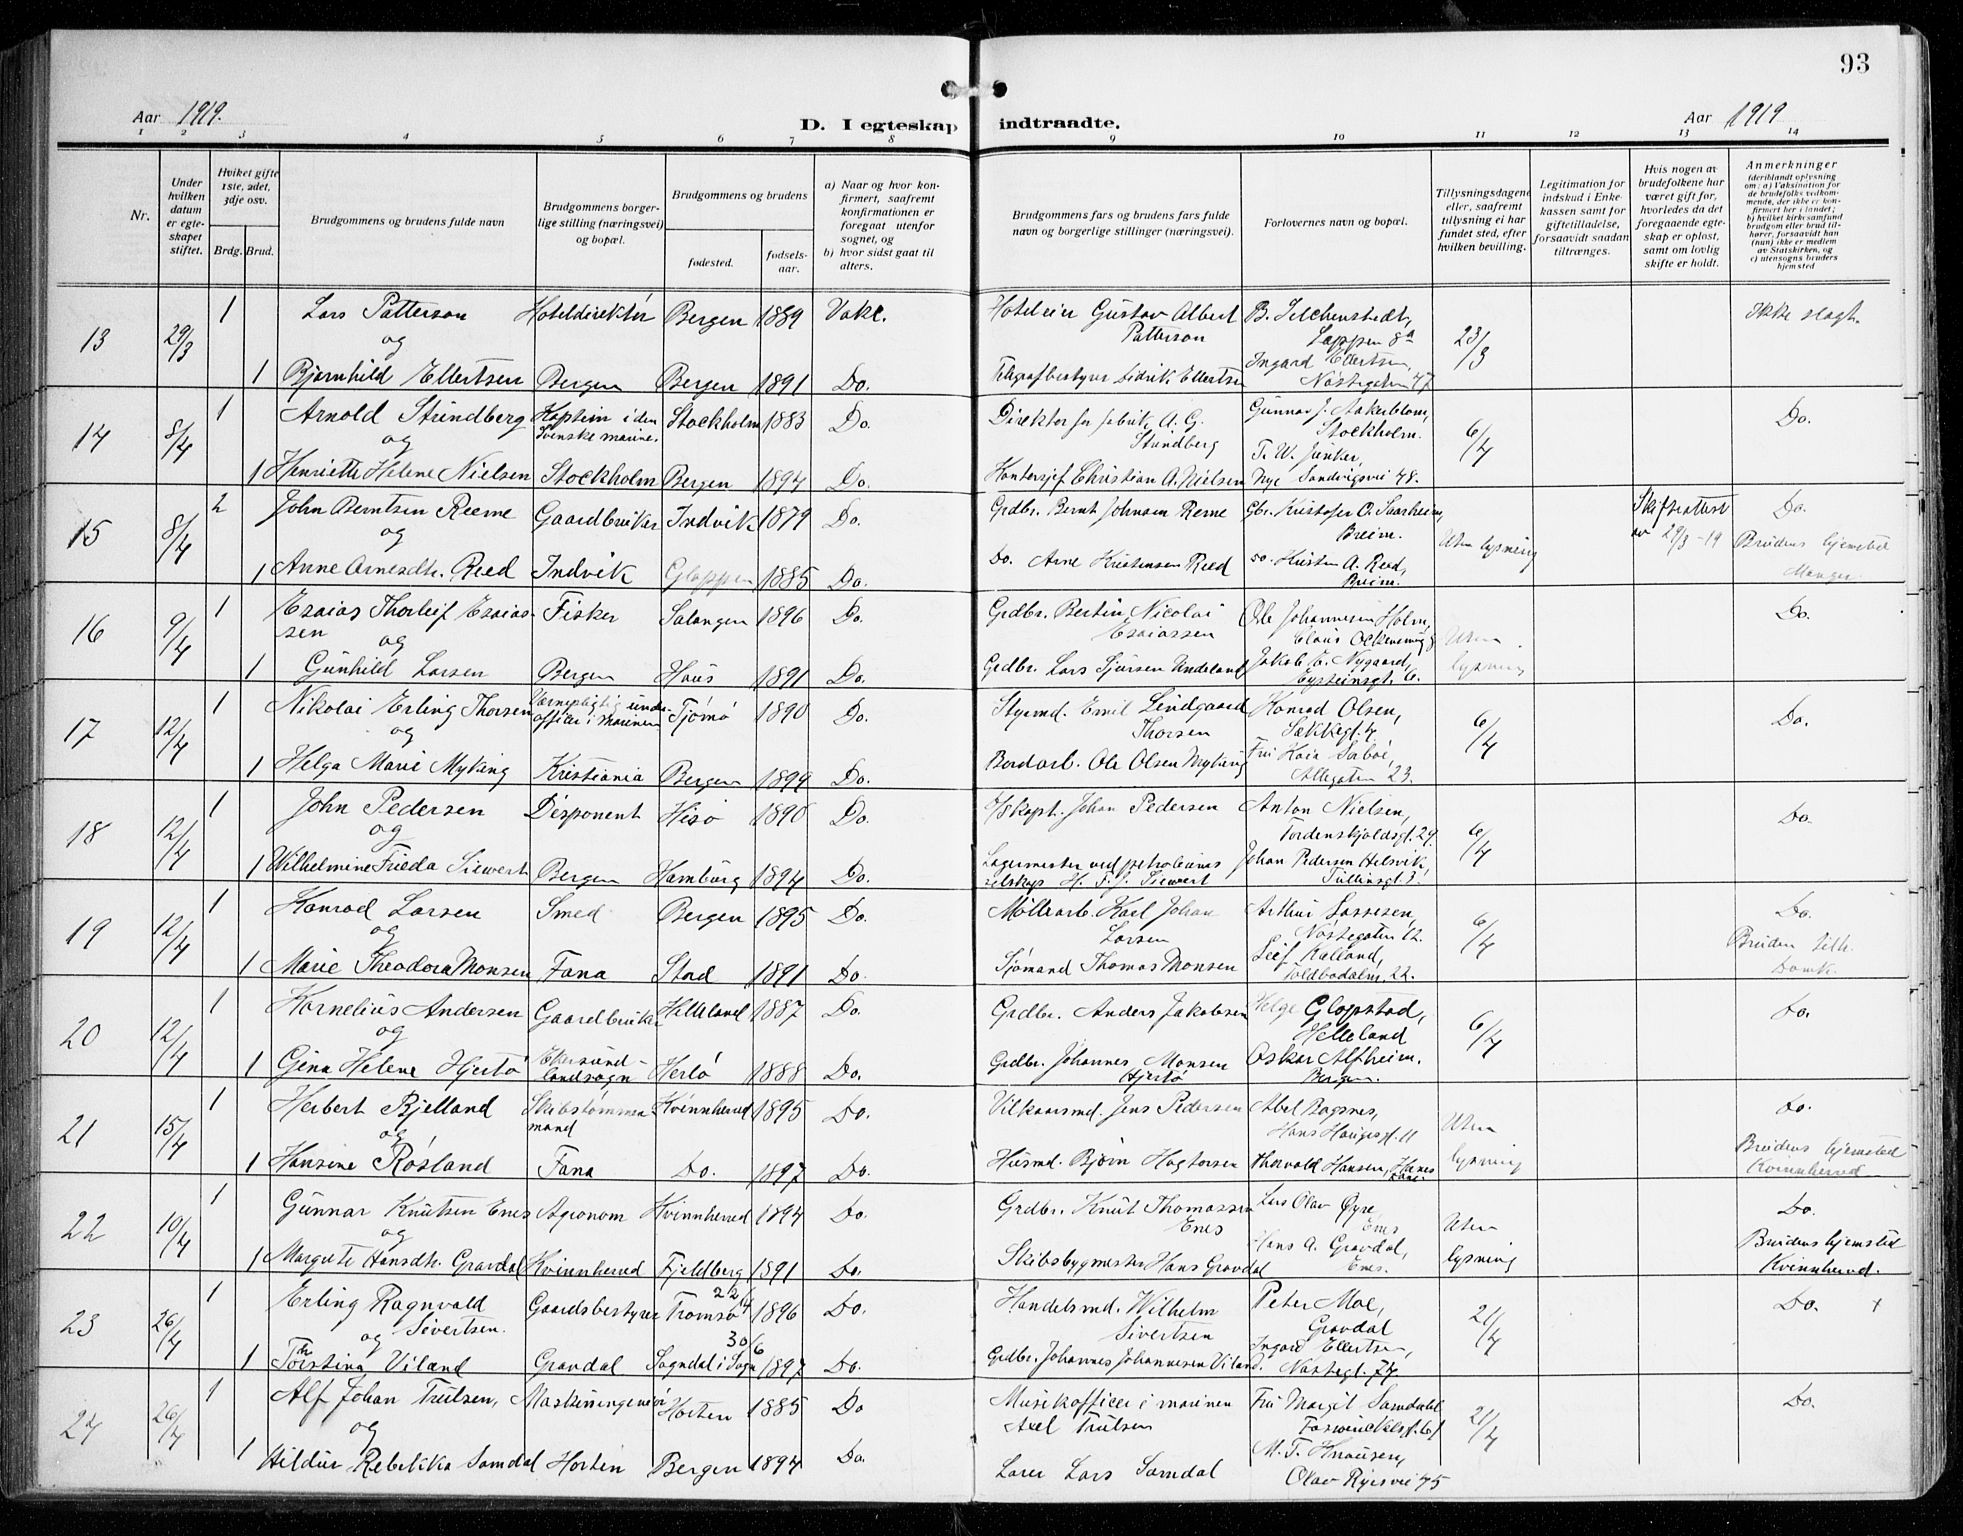 93
Aar 1919.
D. I egteskap indtraadte.
Aar 1919
1 2 3 4 5 6 7 8 9 10 11 12 13 14
Nr.
Under hvilken datum er egteskapet stiftet.
Hviket gifte 1ste, 2det, 3dje osv.
Brdg. Brud.
Brudgommens og brudens fulde navn
Brudgommens borgerlige stilling (næringsvei) og bopæl.
Brudgommens og brudens
fødested.
fødselsaar.
a) Naar og hvor konfirmert, saafremt konfirmationen er foregaat utenfor sognet, og
b) hvor sidst gaat til alters.
Brudgommens fars og brudens fars fulde navn og borgerlige stillinger (næringsvei).
Forlovernes navn og bopæl.
Tillysningsdagene eller, saafremt tillysning ei har fundet sted, efter hvilken bevilling.
Legitimation for indskud i Enkekassen samt for giftetilladelse, forsaavidt saadan tiltrænges.
Hvis nogen av brudefolkene har været gift før, hvorledes da det foregaaende egteskap er opløst, samt om lovlig skifte er holdt.
Anmerkninger
(deriblandt oplysning om: a) Vaksination for de brudefolks vedkommende, der ikke er konfirmert her i landet; b) hvilket kirkesamfund brudgom eller brud tilhører, forsaavidt han (hun) ikke er medlem av Statskirken, og c) utensogns bruders hjemsted
13 29/3 1 Lars Patterson Hoteldirektör Bergen 1889 Vakc. Hoteleier Gustav Albert Patterson 23/3 Ikke slegt.
og Lappen 8a
1 Bjørnhild Ellertsen Bergen Bergen 1891 Do. Telegrafbestyrer Didrik Ellertsen Ingard Ellertsen, Nøstegaten 47
14 8/4 1 Arnold Strindberg Kaptein i den Svenske marine. Stockholm 1883 Do. Direktør A. G. Strindberg Gunnar J. Aakerblom, Stockholm. 6/4 Do.
og
1 Henriette Helene Nielsen Stockholm Bergen 1894 Do. Kontorsjef Christian A. Nielsen T. W. Junker, Nye Sandvigsvei 48.
15 8/4 2 John Berntsen Reeme Gaardbruker Indvik 1879 Do. Grdbr. Bernt Johnsen Reme Gbr. Kristofer O. Saarheim, Breim. Uten lysning Skifteattest av 29/3-19 Do.
og Brudens hjemsted Manger.
1 Anne Arnesdtr. Reed Indvik Gloppen 1885 Do. Do. Arne Kristensen Reed Do. Kristen A. Reed, Breim.
16 9/4 1 Esaias Thorleif Esaiassen Fisker Salangen 1896 Do. Grdbr. Bertin Nicolai Esaiassen Ole Johannesen Holm, Uten lysning Do.
og
1 Gunhild Larsen Bergen Haus 1891 Do. Grdbr. Lars Sjursen Undeland Jakob E. Nygaard, Eysteinsgt. 6.
17 12/4 1 Nikolai Erling Thorsen Værnepligtig underofficer i marinen Tjømø 1890 Do. Styrmd. Emil Lindgaard Thorsen Konrad Olsen, Sækkegt. 4 6/4 Do.
og
1 Helga Marie Myking Kristiania Bergen 1894 Do. Ole Olsen Myking Fru Kaia Sabøe, Allegaten 23.
18 12/4 1 John Pedersen Disponent Hisø 1890 Do. Johan Pedersen Anton Nielsen, Tordenskjoldsgt. 29. 6/4 Do.
og
1 Wilhelmine Frieda Siewert Bergen Hamburg 1894 Do. Lagermester ved petroleumsselskap H. F. J. Siewert Johan Pedersen Helsvik, Tullinsgt. 3
19 12/4 1 Konrad Larsen Smed Bergen 1895 Do. Møllearb. Karl Johan Larsen Arthur Lassesen, Nøstegaten 12. 6/4 Do.
og
1 Marie Theodora Monsen Fana Stad 1891 Do. Sjømand Thomas Monsen Leif Kalland, Toldbodalm. 22. Bruden tilh. Domk.
20 12/4 1 Kornelius Andersen Gaardbruker Helleland 1887 Do. Grdbr. Anders Jakobsen Helge Glopstad, Helleland 6/4 Do.
og
1 Gina Helene Hjertø Ekersund landsogn Herlø 1888 Do. Grdbr. Johannes Monsen Hjertø Oskar Alfheim. Bergen.
21 15/4 1 Herbert Bjelland Skibstømmermand Kvinnherred 1895 Do. Vilkaarsmd. Jens Pedersen Abel Bagsnes, Hans Haugesgt. 11 Uten lysning Do.
og
1 Hansine Røsland Fana Do. 1897 Do. Husmd. Bjørn Hagtorsen Thorvald Hansen, Brudens hjemsted Kvinnherred
22 10/4 1 Gunnar Knutsen Enes Agronom Kvinnherred 1894 Do. Grdbr. Knut Thomassen Enes Lars Olav Øyre, Enes Uten lysning Do.
og
1 Margrete Hansdtr. Gravdal Kvinnherred Fjeldberg 1891 Do. Skibsbygmester Hans Gravdal Hans A. Gravdal, Enes. Brudens hjemsted Kvinnherred.
23 26/4 1 Erling Ragnvald Sivertsen. Gaardsbestyrer Tromsø 22/4 1896 Do. Handelsmd. Wilhelm Sivertsen Peter Moe, Gravdal 21/4 Do. +
og
1 Torstina Viland Gravdal Sogndal i Sogn 30/6 1897 Do. Grdbr. Johannes Johannesen Viland. Ingard Ellertsen, Nøstegt. 47.
24 26/4 1 Alf Johan Trulsen, Maskiningeniør Horten 1885 Do Musikofficer i marinen Axel Trulsen Fru Margit Samdahl 21/4 Do.
og
1 Hildur Rebekka Samdal Horten Bergen 1894 Do. Lærer Lars Samdal M. T. Knausen, Olav Ryesvei 45